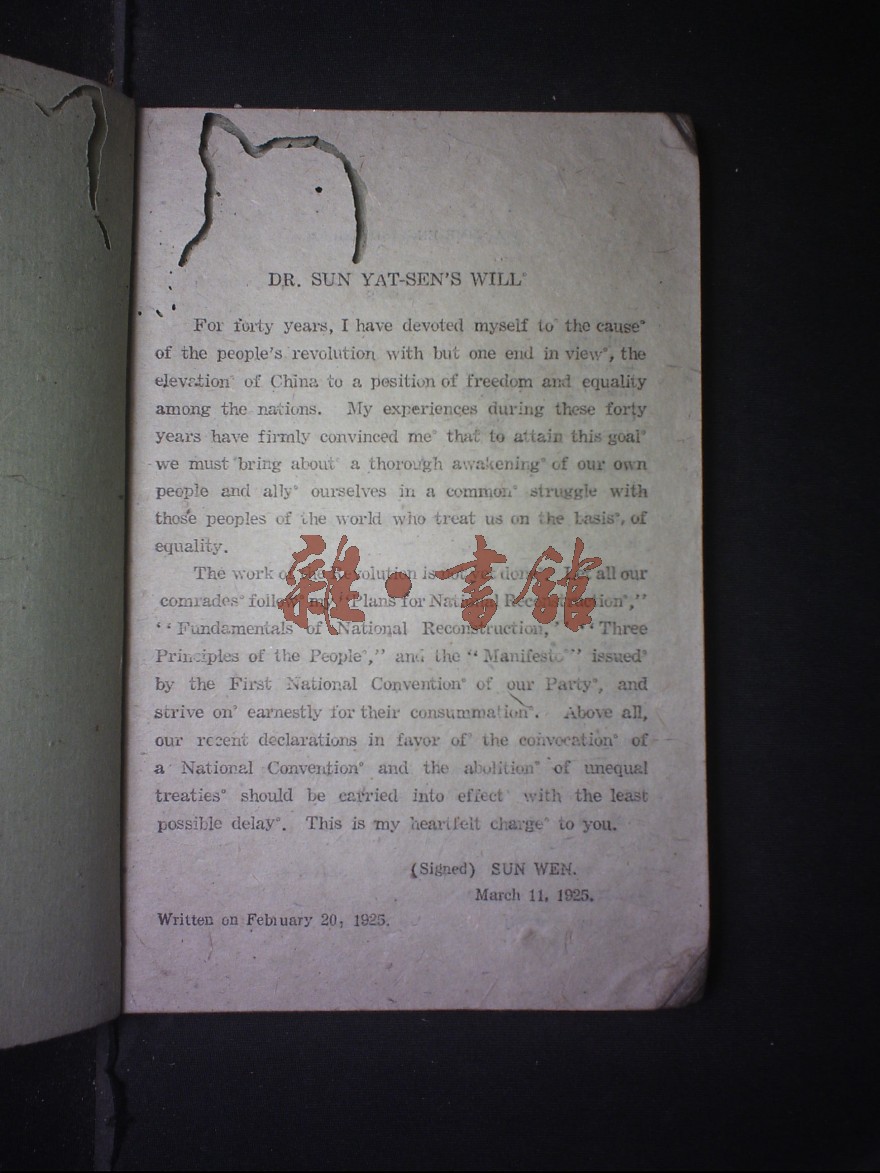 DR. SUN YAT-SEN'S WILL°
For forty years, I have devoted myself to° the cause°
of the people's revolution with but one end in view°, the
elevation° of China to a position of freedom and equality
among the nations. My experiences during these forty
years have firmly convinced me° that to attain this goal°
we must bring about° a thorough awakening° of our own
people and ally° ourselves in a common° struggle with
those peoples° of the world who treat us on the basis°, of
equality.
The work of the Revolution is not yet done. Let all our
comrades° follow my "Plans for National Reconstruction°,"
"Fundamentals of National Reconstruction," "Three
Principles of the People°," and the "Manifesto" issued°
by the First National Convention° of our Party°, and
strive on° earnestly for their consummation°. Above all,
our recent declarations in favor of° the convocation° of
a National Convention° and the abolition° of unequal
treaties° should be carried into effect° with the least
possible delay°. This is my heartfelt charge° to you.
(Signed) SUN WEN.
March 11, 1925.
Written on February 20, 1925.
雜·書館